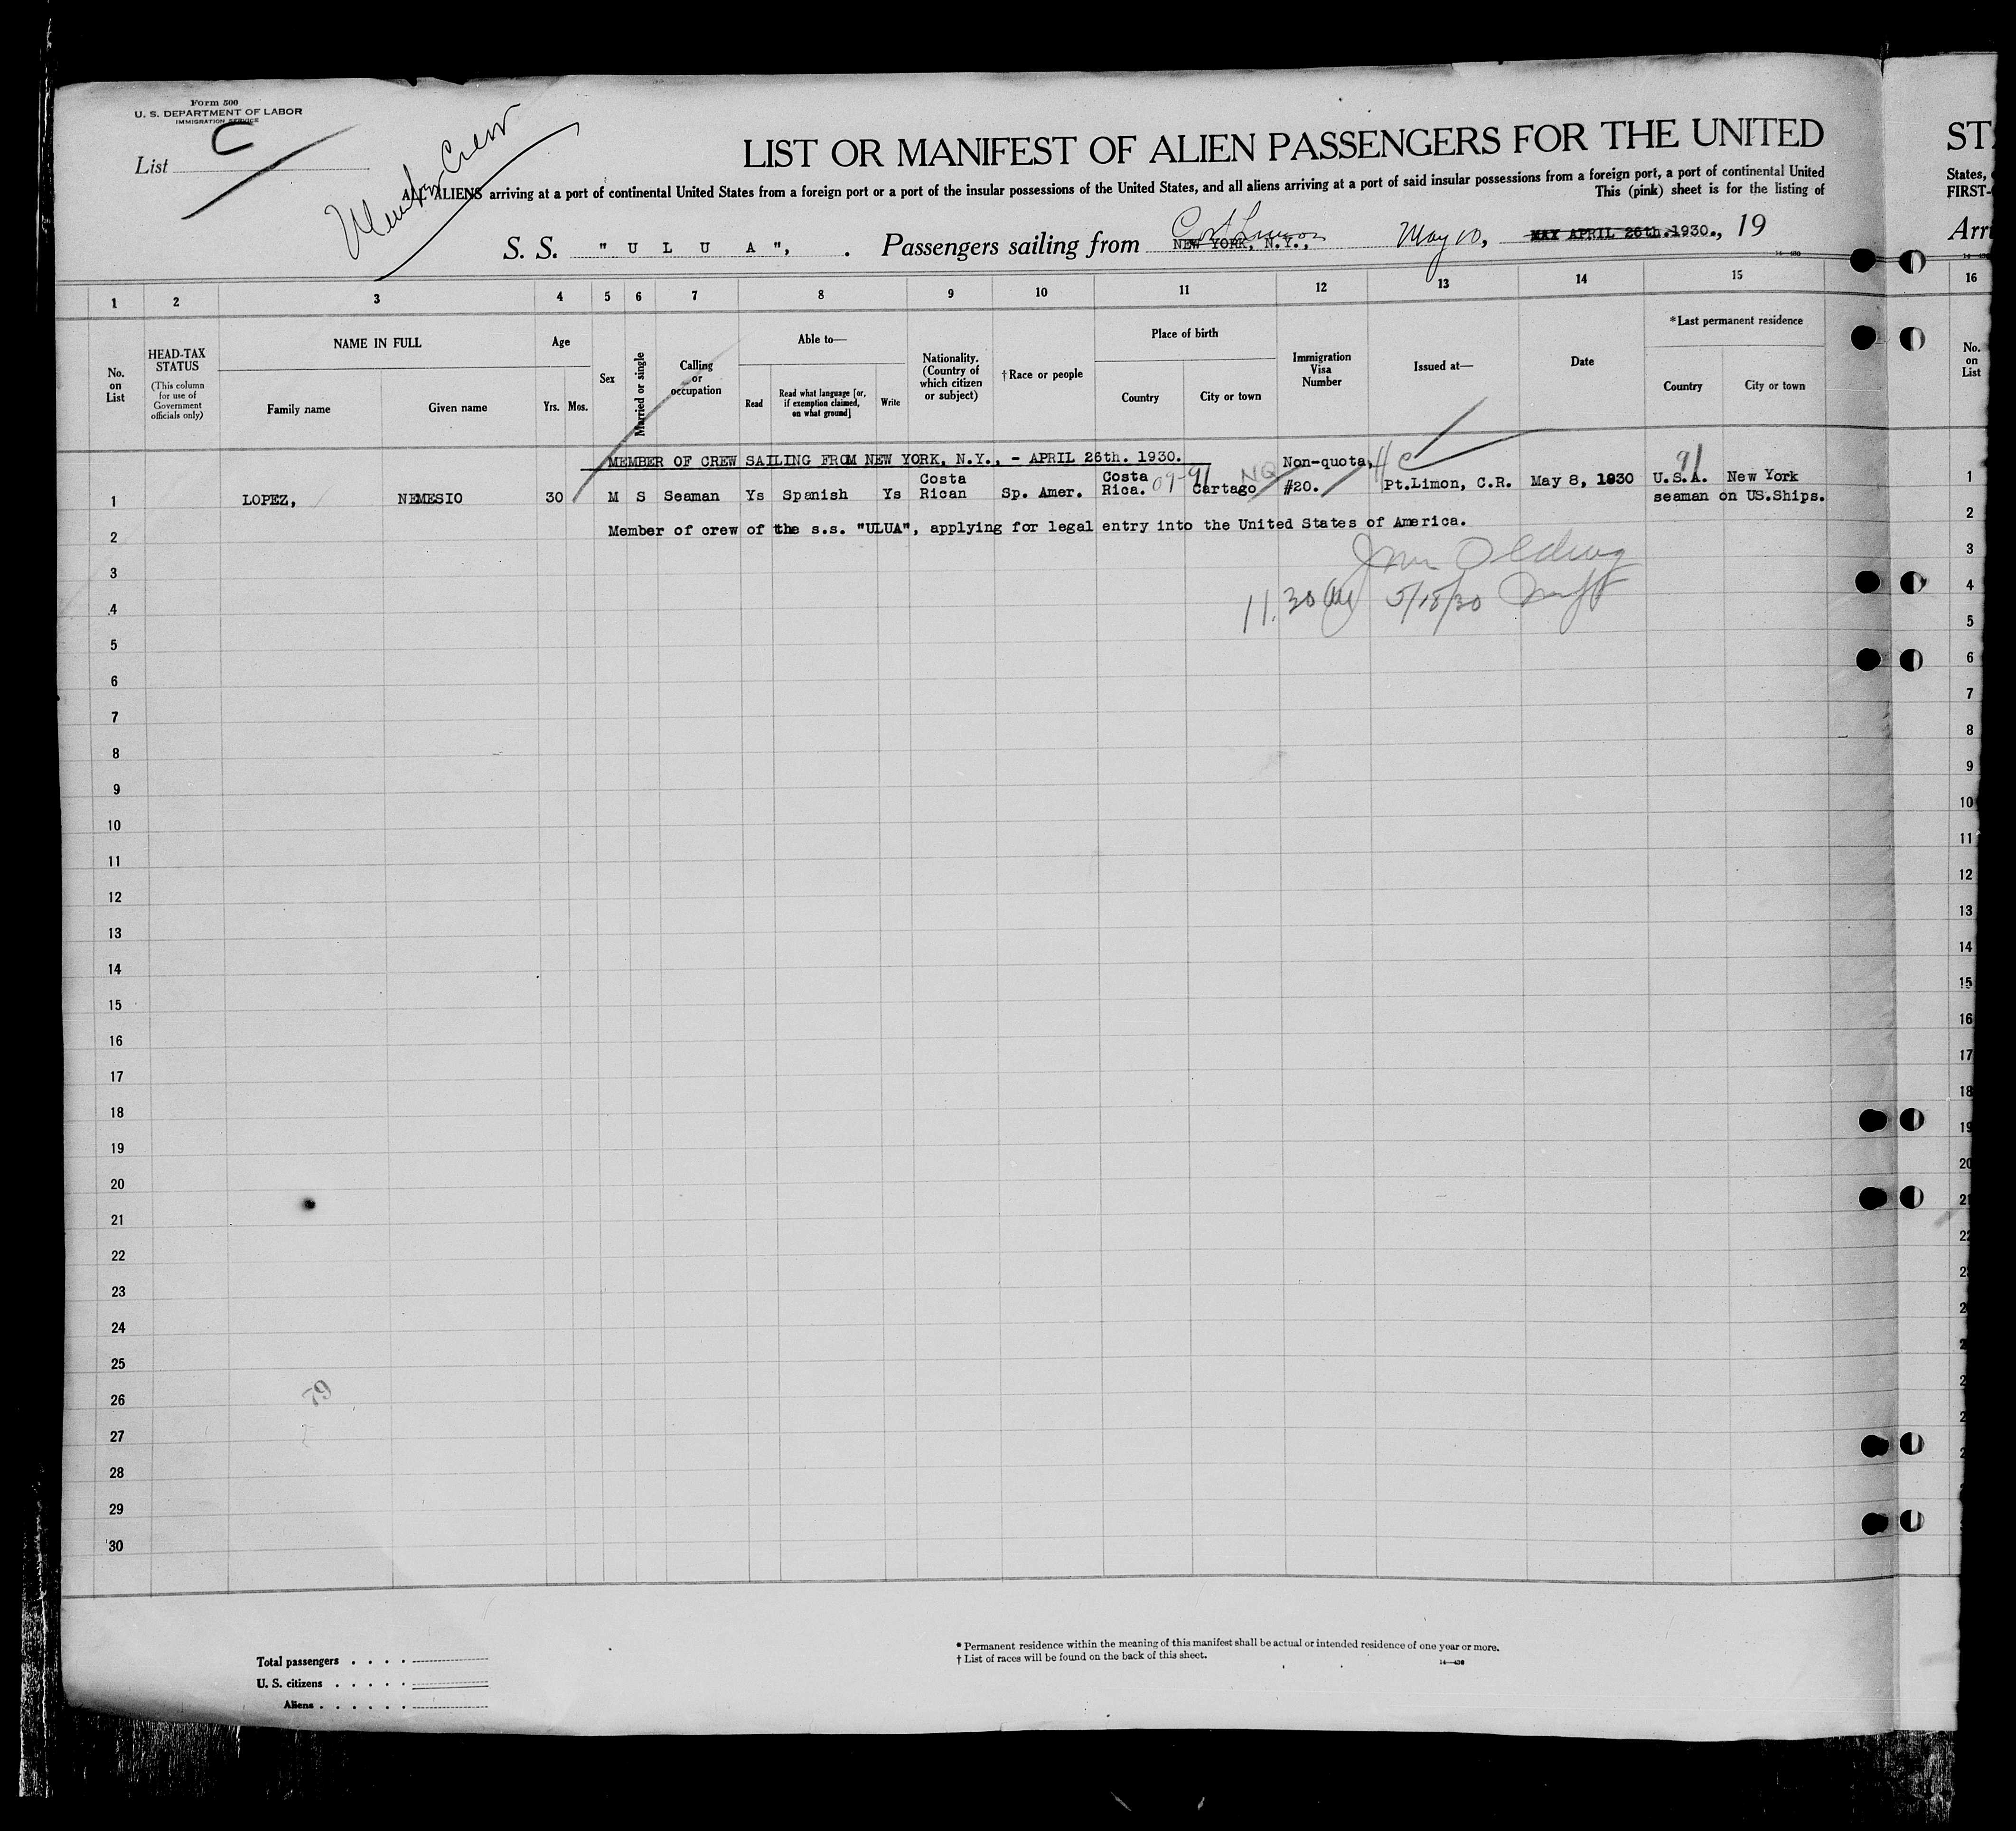 Form 500
U. S. DEPARTMENT OF LABOR
IMMIGRATION SERVICE
List C
Member Crew
LIST OR MANIFEST OF ALIEN PASSENGERS FOR THE UNITED
ST
ALL ALIENS arriving at a port of continental United States from a foreign port or a port of the insular possessions of the United States, and all aliens arriving at a port of said insular possessions from a foreign port, a port of continental United
States,
This (pink) sheet is for the listing of
FIRST-
S. S. " U L U A ", . Passengers sailing from NEW YORK, N.Y., May 10, MAY APRIL 26th.1930., 19
Arri
1 2 3 4 5 6 7 8 9 10 11 12 13 14 15 16
No. on List
HEAD-TAX STATUS
(This column for use of Government officials only)
NAME IN FULL
Family name Given name
Age
Yrs. Mos.
Sex
Married or single
Calling or occupation
Able to—
Read Read what language [or, if exemption claimed, on what ground] Write
Nationality. (Country of which citizen or subject)
†Race or people
Place of birth
Country City or town
Immigration Visa Number
Issued at—
Date
*Last permanent residence
Country City or town
No. on List
MEMBER OF CREW SAILING FROM NEW YORK, N.Y., - APRIL 26th. 1930.
1 LOPEZ, NEMESIO 30 M S Seaman Ys Spanish Ys Costa Rican Sp. Amer. Costa Rica. 09-91 Cartago NQ Non-quota, #20. Pt.Limon, C.R. May 8, 1930 91 U.S.A. New York 1
seaman on US.Ships.
2 Member of crew of the s.s. "ULUA", applying for legal entry into the United States of America. 2
3 3
4 11.30 AM 5/18/30 4
5 5
6 6
7 7
8 8
9 9
10 10
11 11
12 12
13 13
14 14
15 15
16 16
17 17
18 18
19 19
20 20
21 21
22 22
23
24
25
26
79
27
28
29
30
Total passengers . . . .
U. S. citizens . . . . .
Aliens . . . . . .
* Permanent residence within the meaning of this manifest shall be actual or intended residence of one year or more.
† List of races will be found on the back of this sheet.
14—430